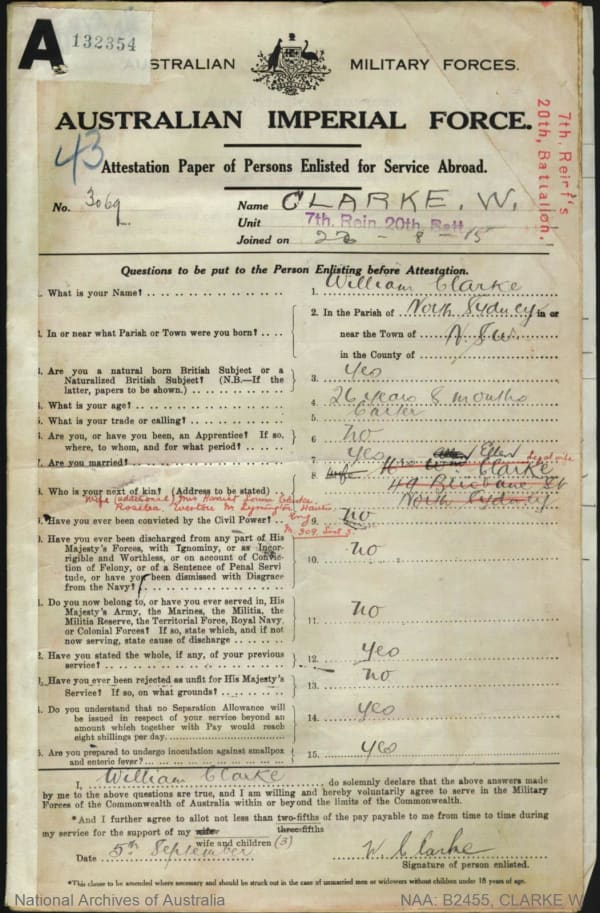 A 132354
AUSTRALIAN MILITARY FORCES.
AUSTRALIAN IMPERIAL FORCE.
7th. Reinf's
20th, Battalion.
43
Attestation Paper of Persons Enlisted for Service Abroad.
No. 3069 Name CLARKE. W.
Unit 7th. Rein 20th. Batt
Joined on 26 - 8 - 15
Questions to be put to the Person Enlisting before Attestation.
1. What is your Name? 1. William Clarke
2. In or near what Parish or Town were you born? 2. In the Parish of North Sydney in or
near the Town of N S W.
in the County of
3. Are you a natural born British Subject or a
Naturalized British Subject? (N.B.—If the
latter, papers to be shown.) 3. Yes
4. What is your age? 4. 26 years 8 months
5. What is your trade or calling? 5. Carter
6. Are you, or have you been, an Apprentice? If so,
where, to whom, and for what period? 6. no
7. Are you married? 7. Yes
8. Who is your next of kin? (Address to be stated) 8. wife Ellen Clarke legal wife
49 Brisbane St
North Sydney
Wife (additional) Mrs Harriet Clarke
Lymington Hants
Eng
9. Have you ever been convicted by the Civil Power? 9. no
10. Have you ever been discharged from any part of His
Majesty's Forces, with Ignominy, or as Incor-
rigible and Worthless, or on account of Convic-
tion of Felony, or of a Sentence of Penal Servi-
tude, or have you been dismissed with Disgrace
from the Navy? 10. no
11. Do you now belong to, or have you ever served in, His
Majesty's Army, the Marines, the Militia, the
Militia Reserve, the Territorial Force, Royal Navy,
or Colonial Forces? If so, state which, and if not
now serving, state cause of discharge 11. no
12. Have you stated the whole, if any, of your previous
service? 12. Yes
13. Have you ever been rejected as unfit for His Majesty's
Service? If so, on what grounds? 13. no
14. Do you understand that no Separation Allowance will
be issued in respect of your service beyond an
amount which together with Pay would reach
eight shillings per day. 14. Yes
15. Are you prepared to undergo inoculation against smallpox
and enteric fever? 15. Yes
I, William Clarke do solemnly declare that the above answers made
by me to the above questions are true, and I am willing and hereby voluntarily agree to serve in the Military
Forces of the Commonwealth of Australia within or beyond the limits of the Commonwealth.
*And I further agree to allot not less than two-fifths of the pay payable to me from time to time during
three-fifths
my service for the support of my wife
wife and children (3)
Date 5th September W Clarke
Signature of person enlisted.
*This clause to be amended where necessary and should be struck out in the case of unmarried men or widowers without children under 18 years of age.
National Archives of Australia NAA: B2455, CLARKE W